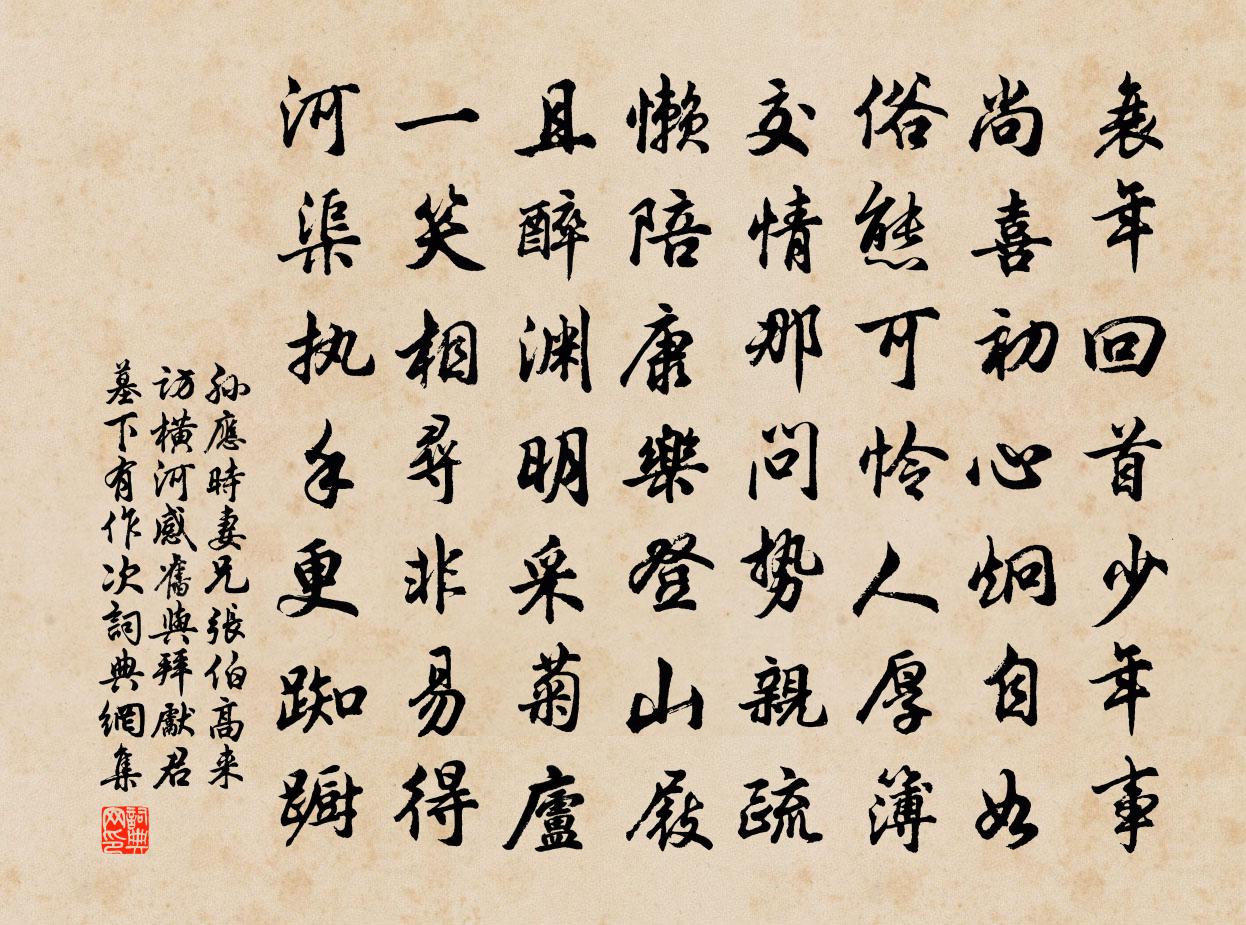 衰年回首少年事
尚喜初心炯自如
俗態可怜人厚薄
交情那問势親疏
懶陪康樂登山屐
且醉渊明采菊廬
一笑相尋非易得
河渠执手更踟蹰
孙應時妻兄張伯高来
访横河感舊與拜獻君
墓下有作次詞典網集
詞典网印